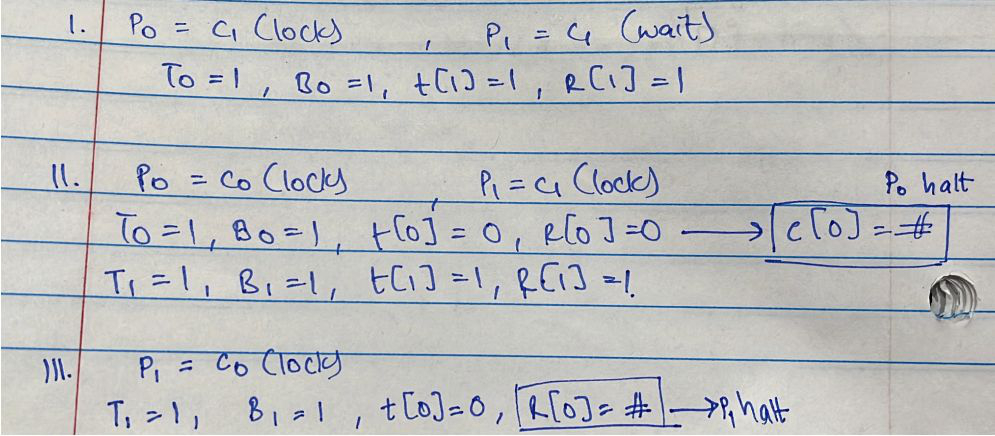 1. P0 = C1 (lock) , P1 = C1 (wait)
T0 = 1 , B0 = 1, t[1] = 1 , R[1] = 1
11. P0 = C0 (lock) , P1 = C1 (lock) P0 halt
T0 = 1, B0 = 1, t[0] = 0, R[0] = 0 → e[0] = #
T1 = 1, B1 = 1, t[1] = 1, R[1] = 1.
111. P1 = C0 (lock)
T1 = 1, B1 = 1 , t[0] = 0, R[0] = # → P1 halt